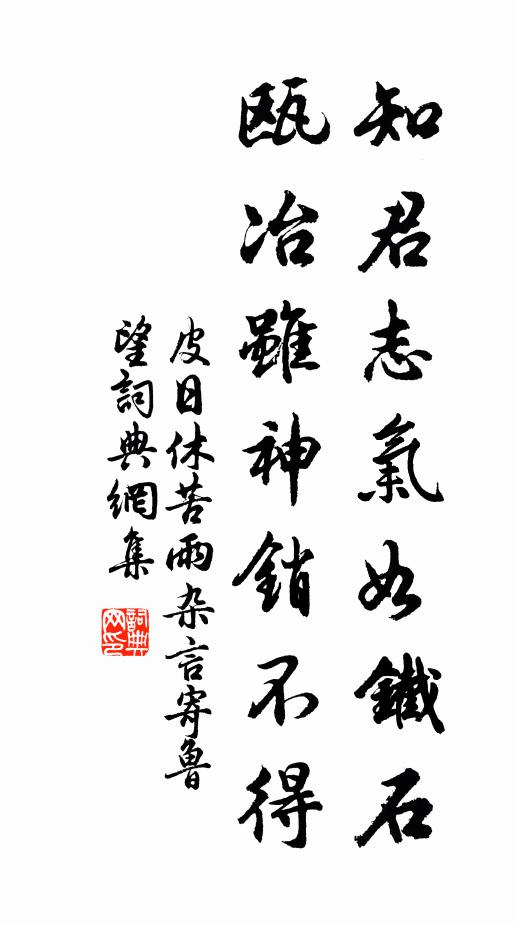 知君志氣如鐵石
甌冶雖神銷不得
皮日休苦雨杂言寄魯
望詞典網集
詞典
网印